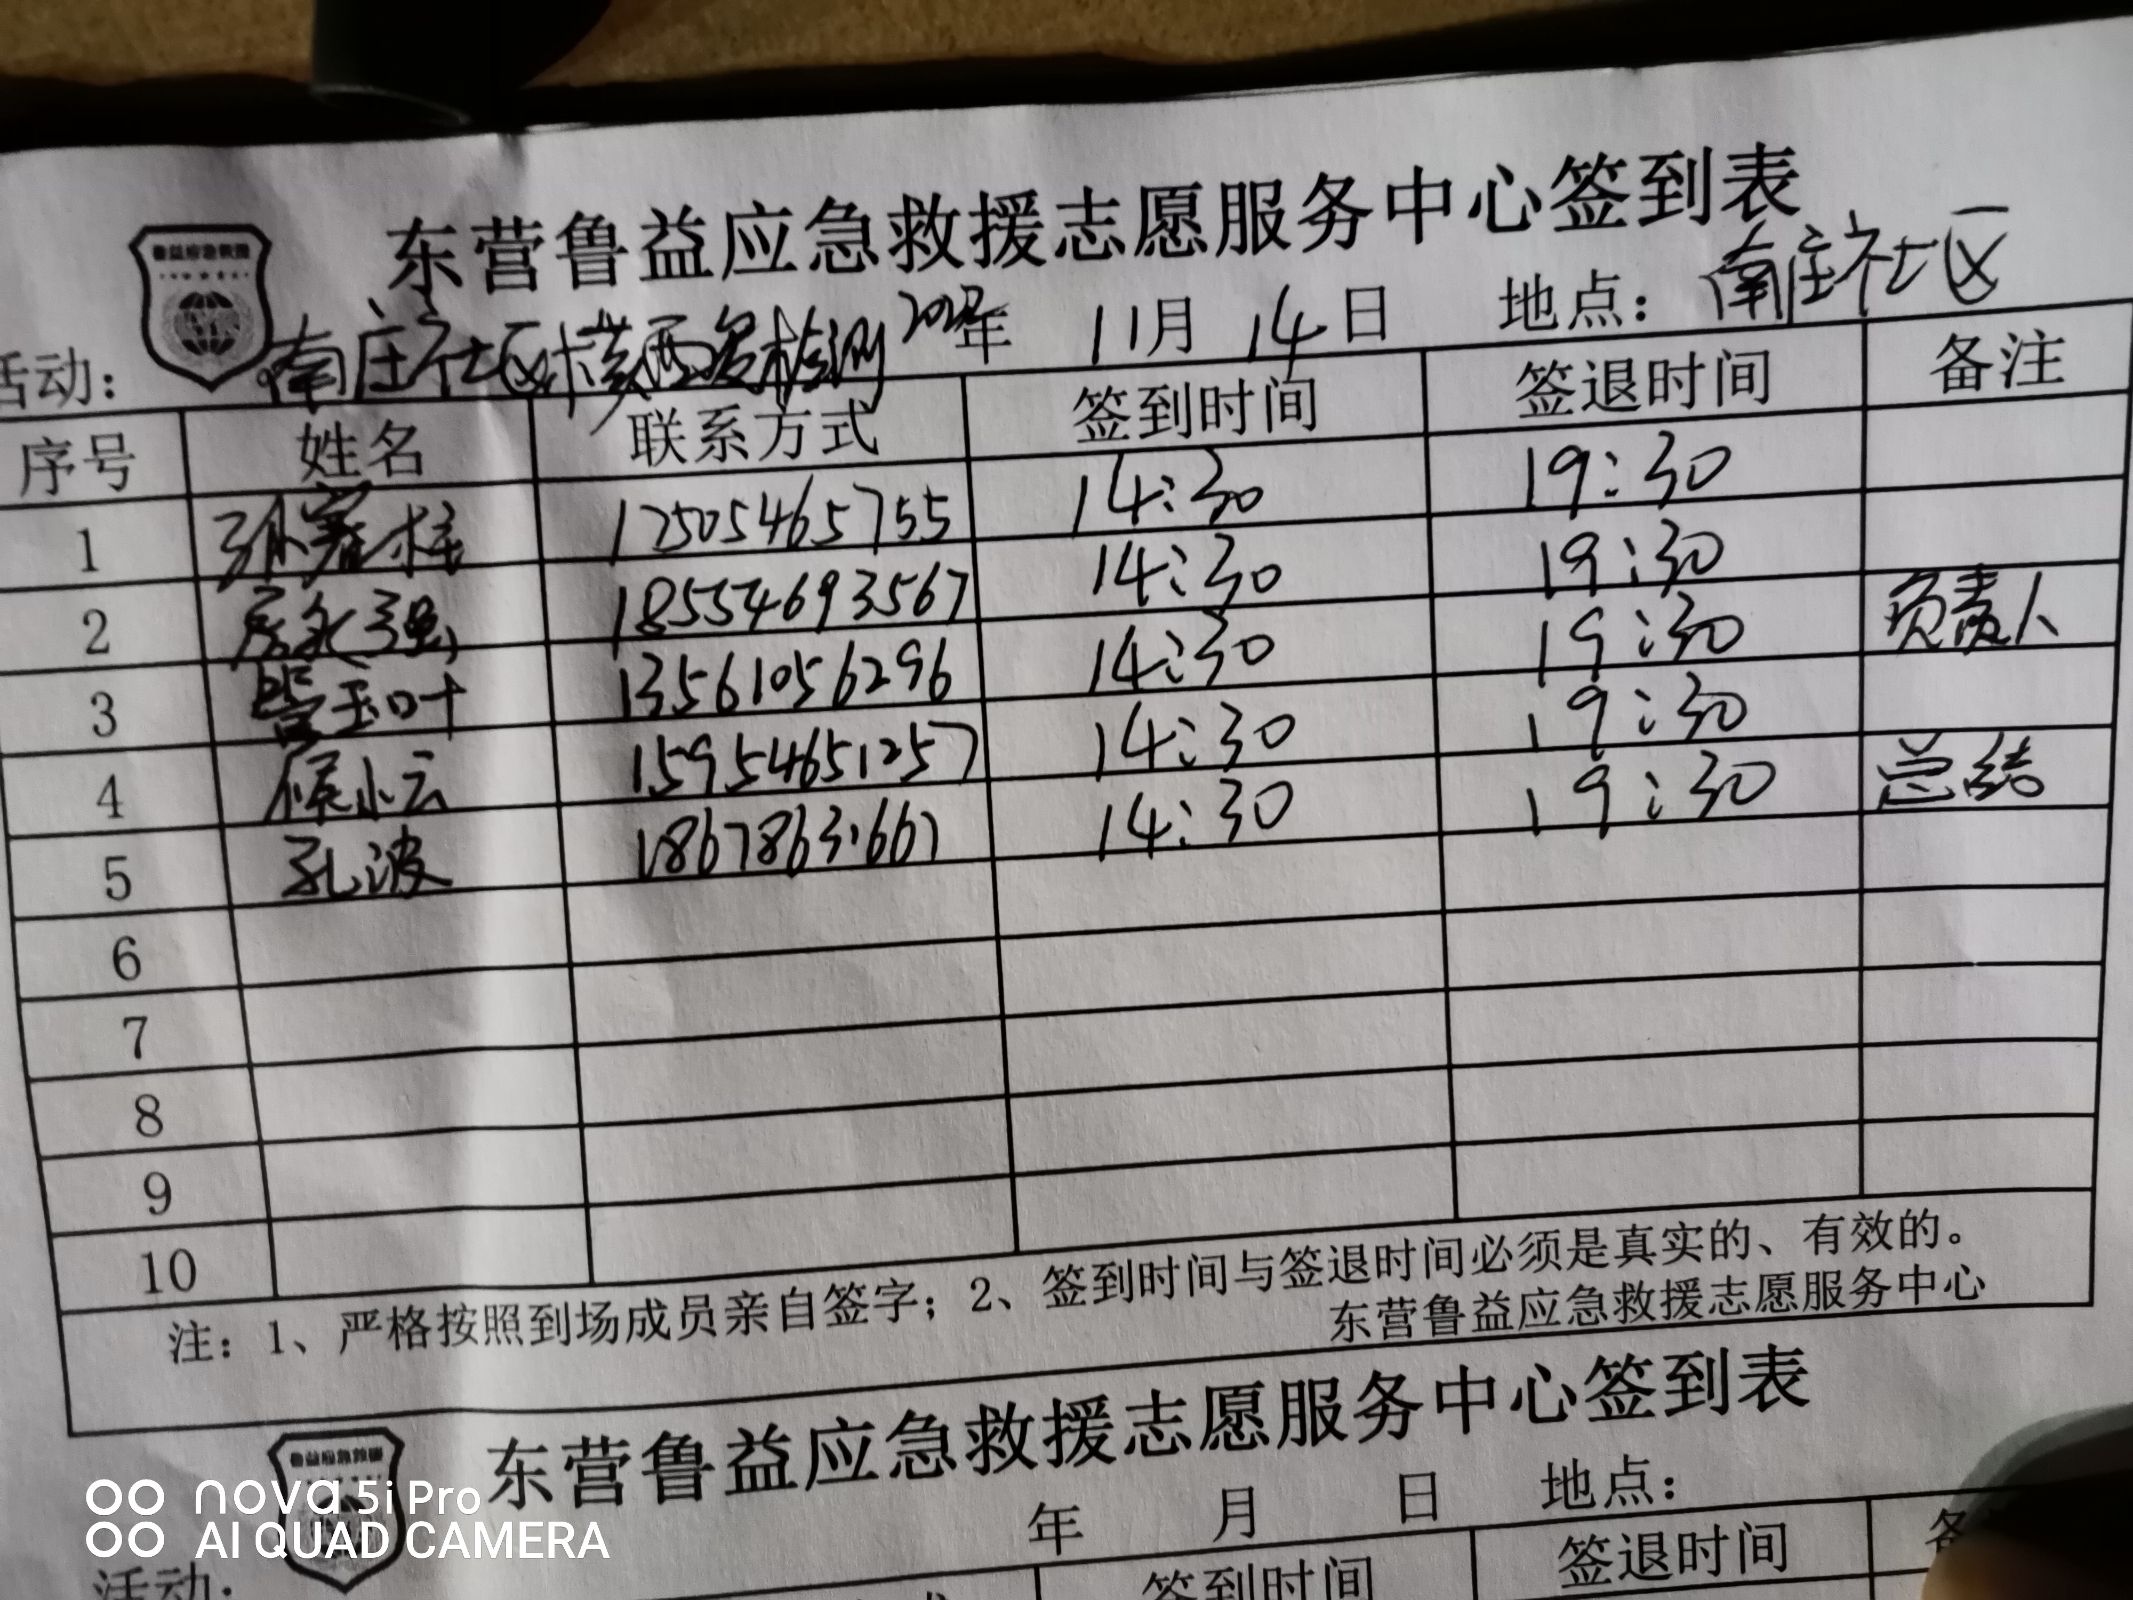 东营鲁益应急救援志愿服务中心签到表
鲁益应急救援
活动： 南庄社区核酸检测 2022年 11月 14日 地点： 南庄社区
序号 姓名 联系方式 签到时间 签退时间 备注
1 17505465755 14:30 19:30
2 房永强 18554693567 14:30 19:30
3 玉叶 13561056296 14:30 19:30 负责人
4 侯小云 15954651257 14:30 19:30
5 孔波 18678631667 14:30 19:30 总结
6
7
8
9
10
注：1、严格按照到场成员亲自签字；2、签到时间与签退时间必须是真实的、有效的。
东营鲁益应急救援志愿服务中心
东营鲁益应急救援志愿服务中心签到表
鲁益应急救援
年 月 日 地点：
活动：
签到时间 签退时间
nova 5i Pro
AI QUAD CAMERA